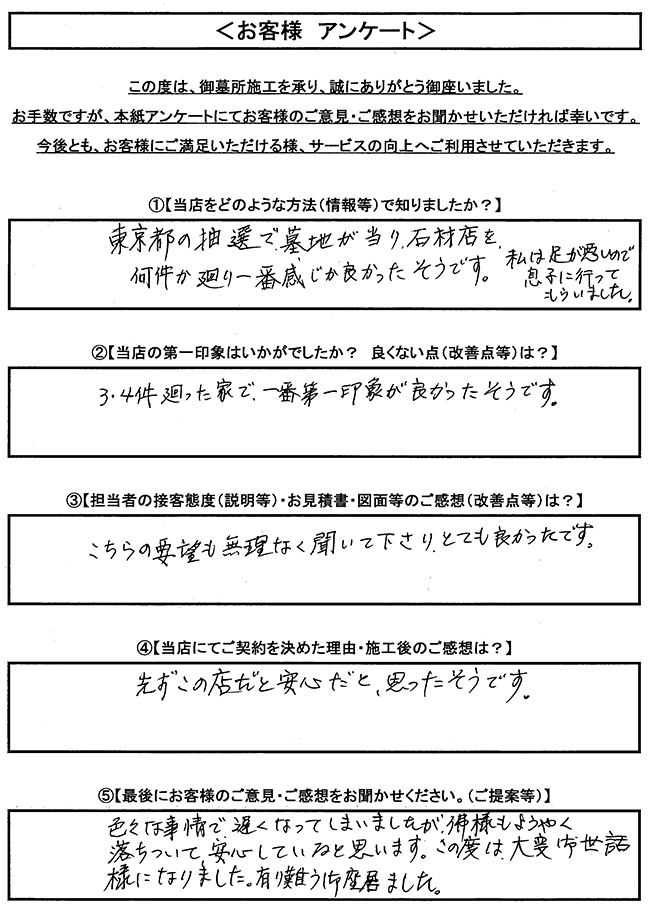 ＜お客様 アンケート＞
この度は、御墓所施工を承り、誠にありがとう御座いました。
お手数ですが、本紙アンケートにてお客様のご意見・ご感想をお聞かせいただければ幸いです。
今後とも、お客様にご満足いただける様、サービスの向上へご利用させていただきます。
①【当店をどのような方法（情報等）で知りましたか？】
東京都の抽選で、墓地が当り、石材店を、
何件か廻り一番感じが良かったそうです。
私は足が悪いので
息子に行って
もらいました。
②【当店の第一印象はいかがでしたか？ 良くない点（改善点等）は？】
3・4件廻った家で、一番第一印象が良かったそうです。
③【担当者の接客態度（説明等）・お見積書・図面等のご感想（改善点等）は？】
こちらの要望も無理なく聞いて下さり、とても良かったです。
④【当店にてご契約を決めた理由・施工後のご感想は？】
先ずこの店だと安心だと、思ったそうです。
⑤【最後にお客様のご意見・ご感想をお聞かせください。（ご提案等）】
色々な事情で、遅くなってしまいましたが、佛様もようやく
落ちついて、安心していると思います。この度は、大変御世話
様になりました。有り難う御座居ました。